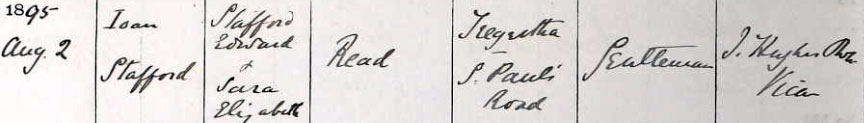 1895
Aug. 2
Ioan
Stafford
Stafford
Edward
+
Sara
Elizabeth
Read
Tregertha
S. Paul's
Road
Gentleman
J. Hughes
Vicar